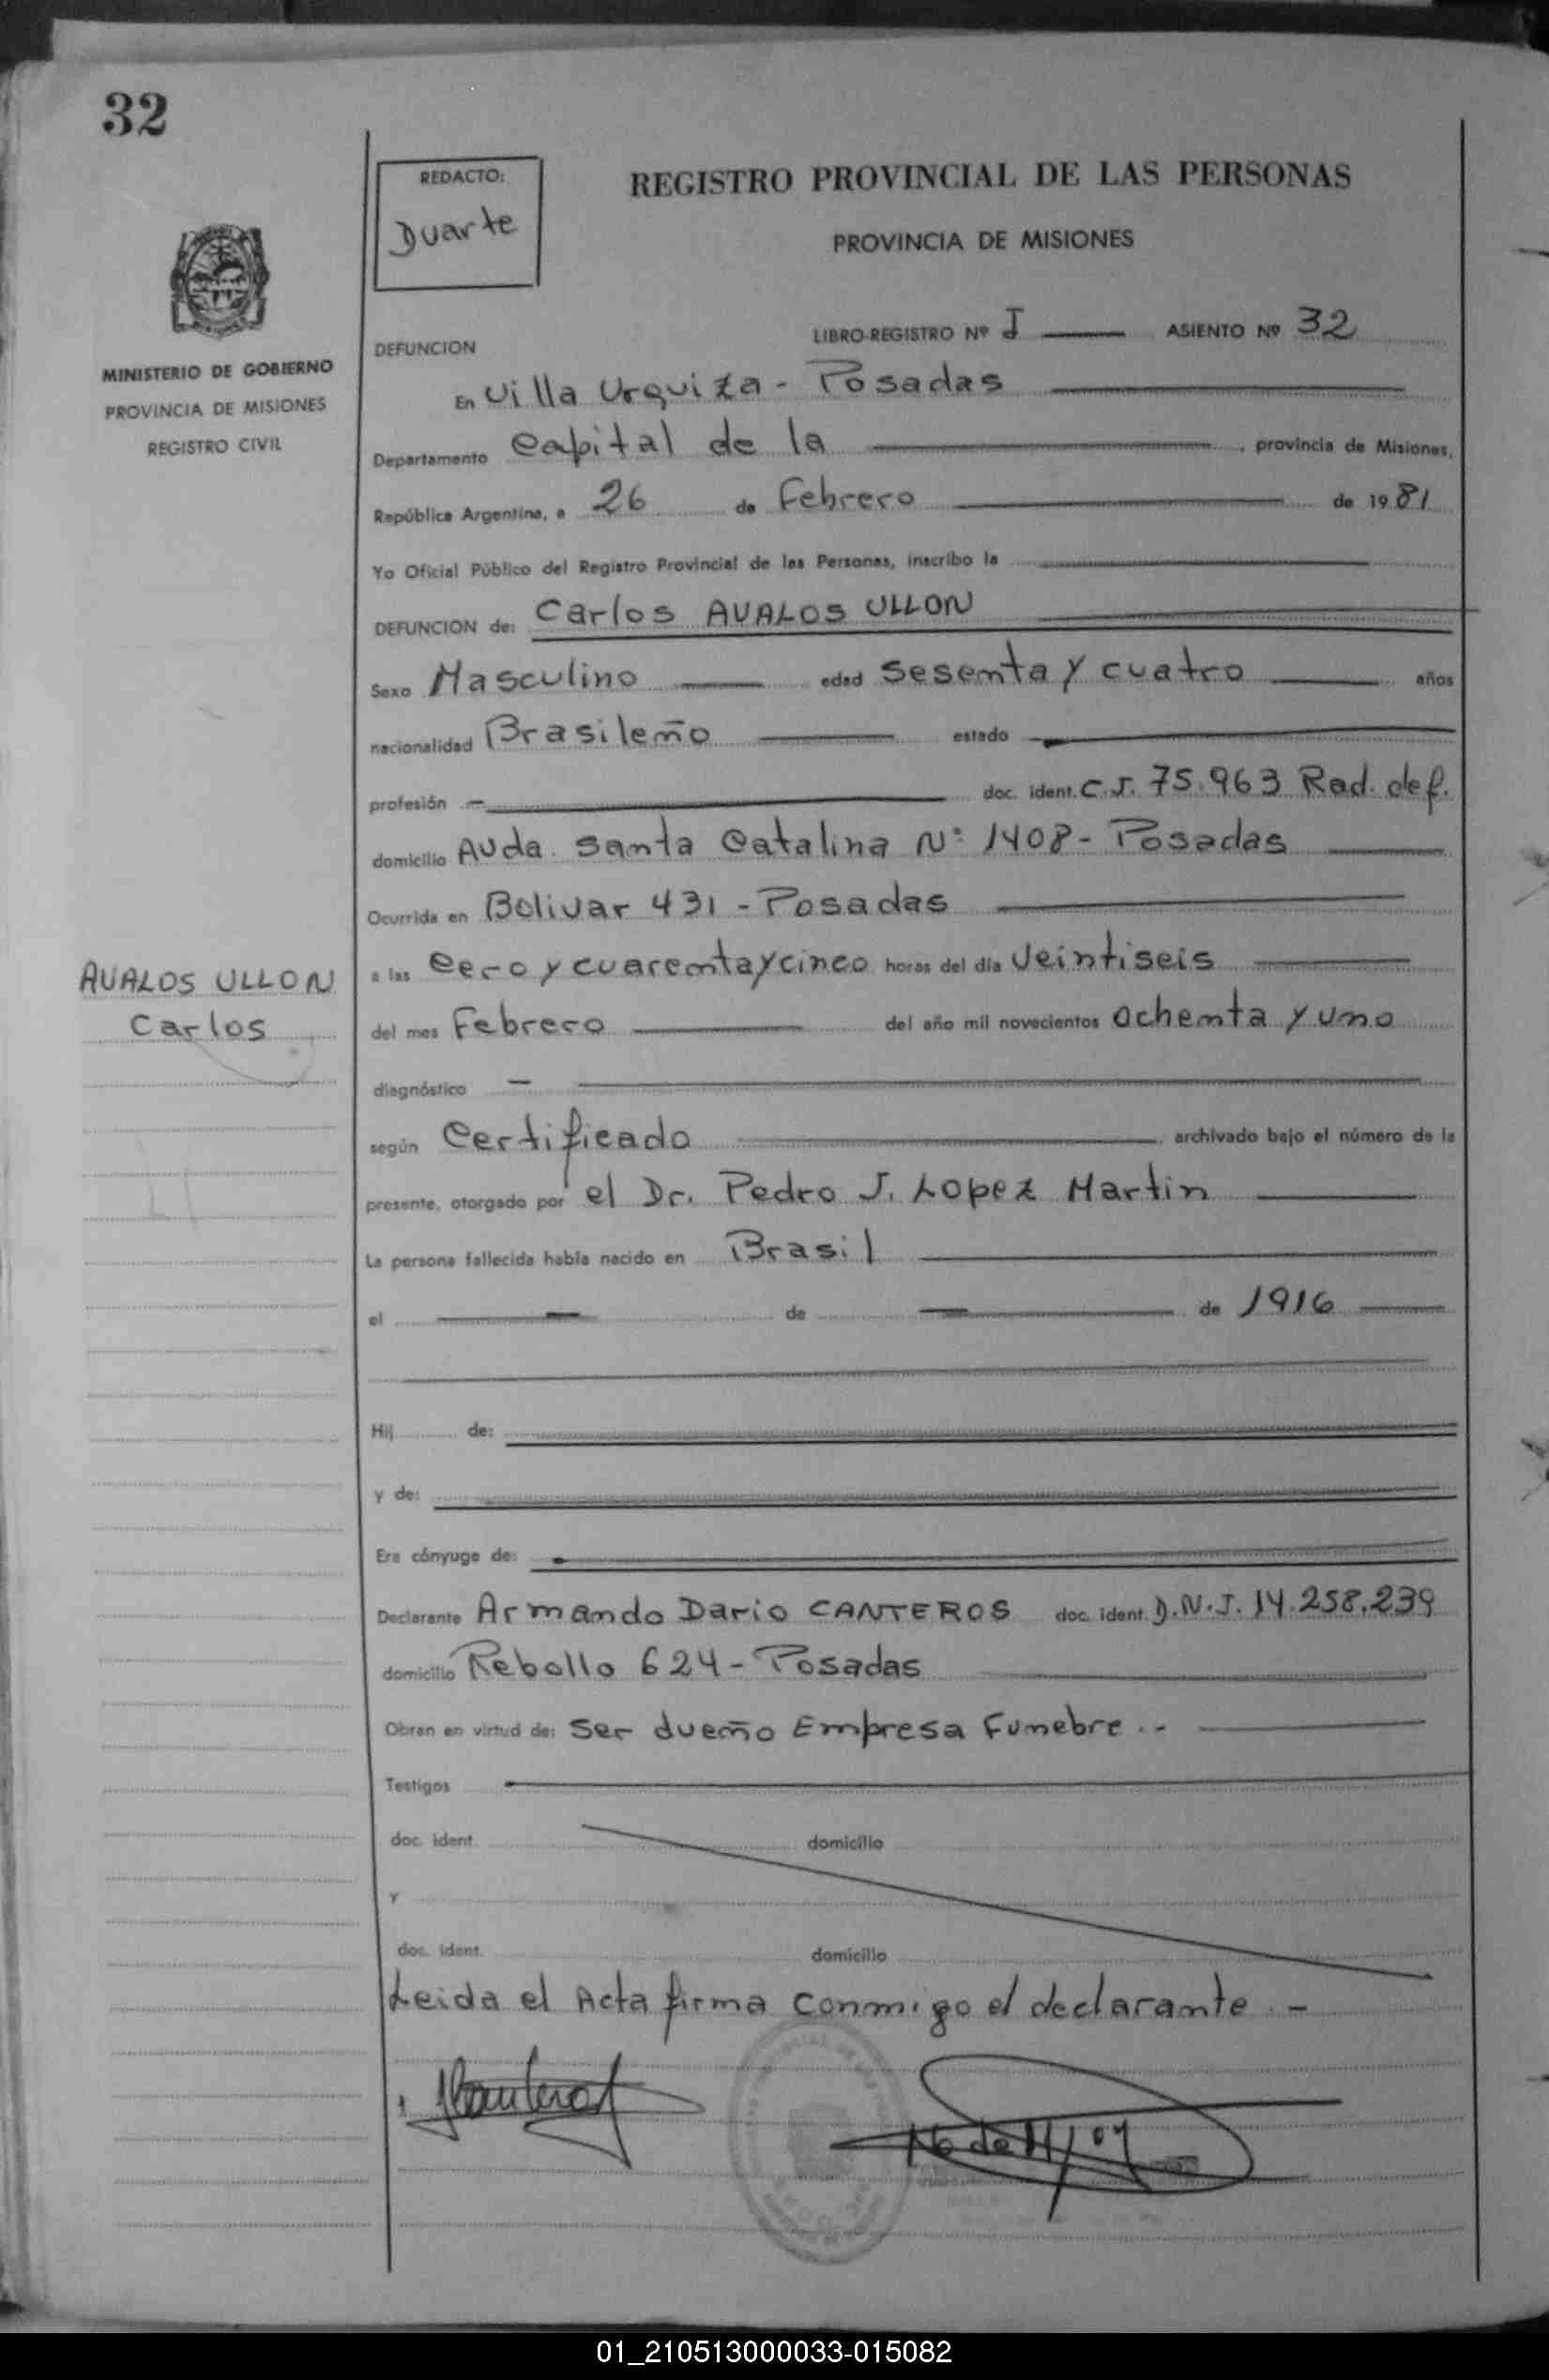 32
REDACTO:
Duarte
REGISTRO PROVINCIAL DE LAS PERSONAS
PROVINCIA DE MISIONES
MINISTERIO DE GOBIERNO
PROVINCIA DE MISIONES
REGISTRO CIVIL
LIBRO-REGISTRO Nº I ASIENTO Nº 32
DEFUNCION
En Villa Urquiza - Posadas
Departamento Capital de la , provincia de Misiones,
República Argentina, a 26 de Febrero de 1981
Yo Oficial Público del Registro Provincial de las Personas, inscribo la
DEFUNCION de: Carlos AVALOS ULLON
Sexo Masculino edad Sesenta y cuatro años
nacionalidad Brasileño estado -
profesión - doc. ident. C.I. 75.963 Rad. def.
domicilio Avda. Santa Catalina Nº 1408 - Posadas
Ocurrida en Bolivar 431 - Posadas
a las Cero y cuarenta y cinco horas del día Veintiseis
AVALOS ULLON
Carlos
del mes Febrero del año mil novecientos Ochenta y uno
diagnóstico -
según Certificado archivado bajo el número de la
presente, otorgado por el Dr. Pedro J. Lopez Martin
La persona fallecida había nacido en Brasil
el - de - de 1916
Hij de:
y de:
Era cónyuge de:
Declarante Armando Dario CANTEROS doc. ident. D.N.I. 14.258.239
domicilio Rebollo 624 - Posadas
Obran en virtud de: Ser dueño Empresa Funebre.-
Testigos
doc. ident. domicilio
y
doc. ident. domicilio
Leida el Acta firma conmigo el declarante.-
01_210513000033-015082